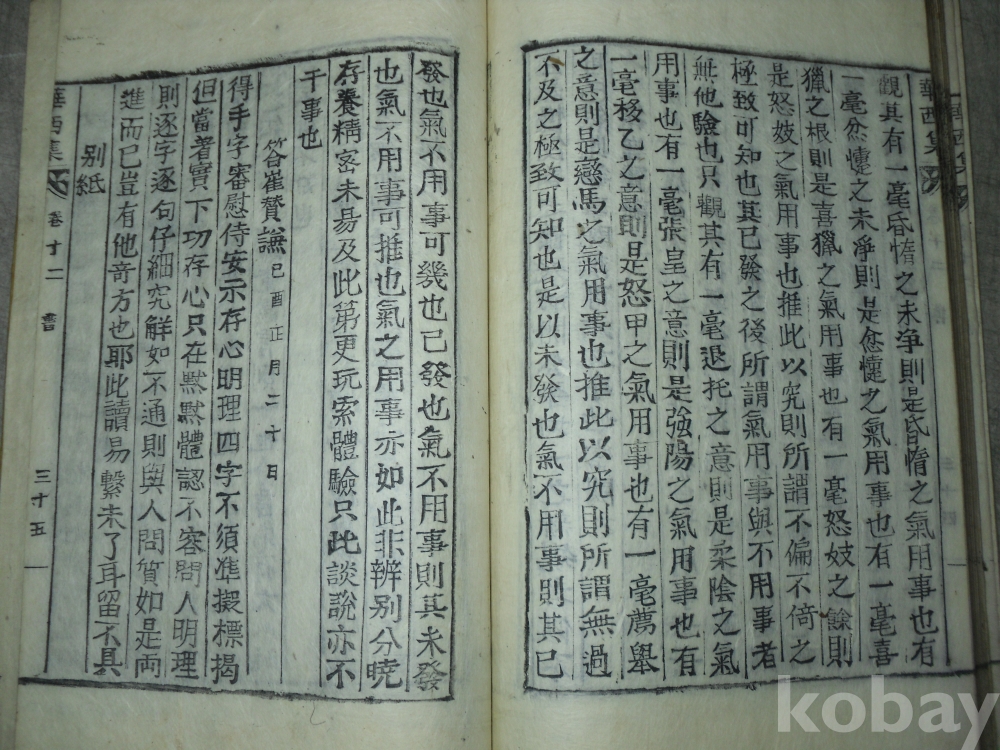 華西集
觀其有一毫昏惰之未淨則是昏惰之氣用事也有
一毫忿懥之未淨則是忿懥之氣用事也有一毫喜
獵之根則是喜獵之氣用事也有一毫怒妓之餘則
是怒妓之氣用事也推此以究則所謂不偏不倚之
極致可知也其已發之後所謂氣用事與不用事者
無他驗也只觀其有一毫退托之意則是柔陰之氣
用事也有一毫張皇之意則是強陽之氣用事也有
一毫移乙之意則是怒甲之氣用事也有一毫薦舉
之意則是戀馬之氣用事也推此以究則所謂無過
不及之極致可知也是以未發也氣不用事則其已
發也氣不用事可幾也已發也氣不用事則其未發
也氣不用事可推也氣之用事亦如此非辨別分曉
存養精密未易及此第更玩索體驗只此談說亦不
干事也
答崔贊謙 己酉正月二十日
得手字審慰侍安示存心明理四字不須准擬標揭
但當著實下功存心只在默默體認不容問人明理
則逐字逐句仔細究解如不通則與人問質如是兩
進而已豈有他奇方也耶此讀易繫未了耳留不具
別紙
華西集 卷十二 書 三十五
kobay